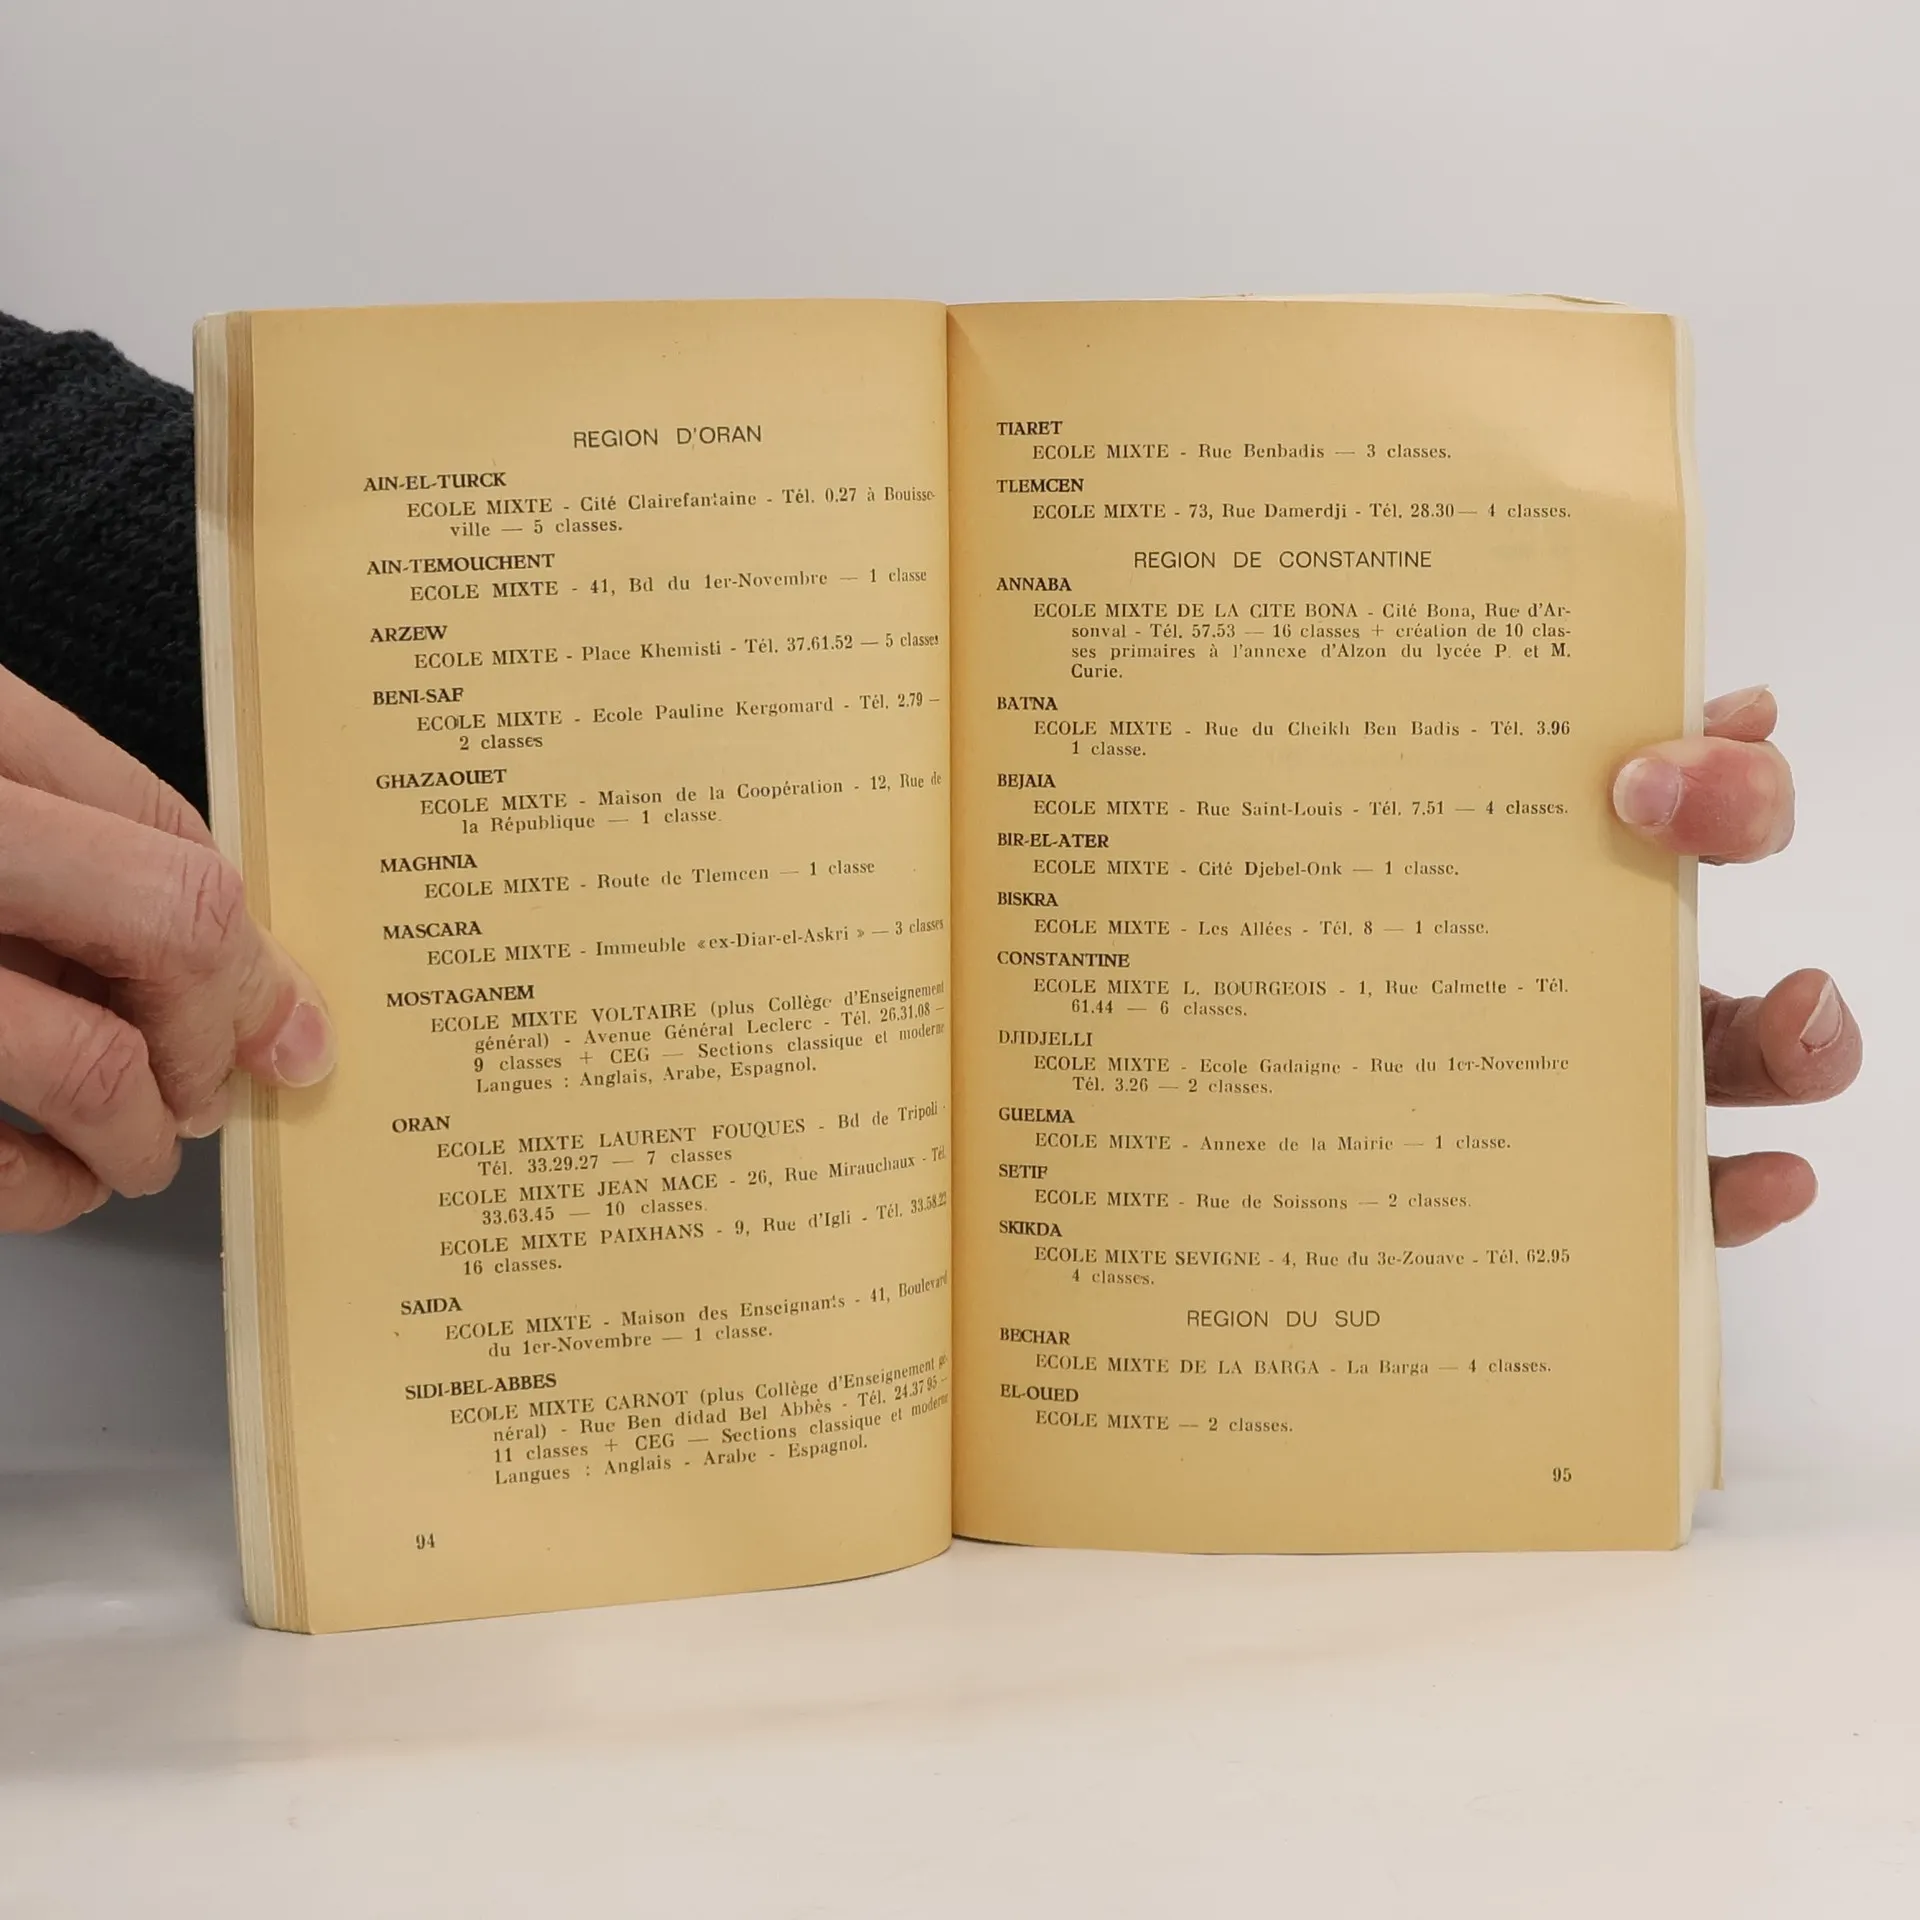 REGION D'ORAN
AIN-EL-TURCK
ECOLE MIXTE - Cité Clairefantaine - Tél. 0.27 à Bouisse-
ville — 5 classes.
AIN-TEMOUCHENT
ECOLE MIXTE - 41, Bd du 1er-Novembre — 1 classe
ARZEW
ECOLE MIXTE - Place Khemisti - Tél. 37.61.52 — 5 classes
BENI-SAF
ECOLE MIXTE - Ecole Pauline Kergomard - Tél. 2.79 —
2 classes
GHAZAOUET
ECOLE MIXTE - Maison de la Coopération - 12, Rue de
la République — 1 classe.
MAGHNIA
ECOLE MIXTE - Route de Tlemcen — 1 classe
MASCARA
ECOLE MIXTE - Immeuble «ex-Diar-el-Askri » — 3 classes
MOSTAGANEM
ECOLE MIXTE VOLTAIRE (plus Collège d'Enseignement
général) - Avenue Général Leclerc - Tél. 26.31.08 —
9 classes + CEG — Sections classique et moderne
Langues : Anglais, Arabe, Espagnol.
ORAN
ECOLE MIXTE LAURENT FOUQUES - Bd de Tripoli -
Tél. 33.29.27 — 7 classes
ECOLE MIXTE JEAN MACE - 26, Rue Mirauchaux - Tél.
33.63.45 — 10 classes.
ECOLE MIXTE PAIXHANS - 9, Rue d'Igli - Tél. 33.58.22
16 classes.
SAIDA
ECOLE MIXTE - Maison des Enseignants - 41, Boulevard
du 1er-Novembre — 1 classe.
SIDI-BEL-ABBES
ECOLE MIXTE CARNOT (plus Collège d'Enseignement gé-
néral) - Rue Ben didad Bel Abbès - Tél. 24.37 95 —
11 classes + CEG — Sections classique et moderne
Langues : Anglais - Arabe - Espagnol.
94
TIARET
ECOLE MIXTE - Rue Benbadis — 3 classes.
TLEMCEN
ECOLE MIXTE - 73, Rue Damerdji - Tél. 28.30— 4 classes.
REGION DE CONSTANTINE
ANNABA
ECOLE MIXTE DE LA CITE BONA - Cité Bona, Rue d'Ar-
sonval - Tél. 57.53 — 16 classes + création de 10 clas-
ses primaires à l'annexe d'Alzon du lycée P. et M.
Curie.
BATNA
ECOLE MIXTE - Rue du Cheikh Ben Badis - Tél. 3.96
1 classe.
BEJAIA
ECOLE MIXTE - Rue Saint-Louis - Tél. 7.51 — 4 classes.
BIR-EL-ATER
ECOLE MIXTE - Cité Djebel-Onk — 1 classe.
BISKRA
ECOLE MIXTE - Les Allées - Tél. 8 — 1 classe.
CONSTANTINE
ECOLE MIXTE L. BOURGEOIS - 1, Rue Calmette - Tél.
61.44 — 6 classes.
DJIDJELLI
ECOLE MIXTE - Ecole Gadaigne - Rue du 1er-Novembre
Tél. 3.26 — 2 classes.
GUELMA
ECOLE MIXTE - Annexe de la Mairie — 1 classe.
SETIF
ECOLE MIXTE - Rue de Soissons — 2 classes.
SKIKDA
ECOLE MIXTE SEVIGNE - 4, Rue du 3e-Zouave - Tél. 62.95
4 classes.
REGION DU SUD
BECHAR
ECOLE MIXTE DE LA BARGA - La Barga — 4 classes.
EL-OUED
ECOLE MIXTE — 2 classes.
95